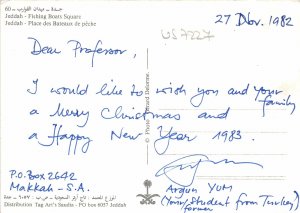 جدة - ميدان القوارب - 60
Jeddah - Fishing Boats Square
Jeddah - Place des Bateaux de pêche
27 Nov. 1982
US7227
Dear Professor,
I would like to wish you and your family
a Merry Christmas and
a Happy New Year 1983.
P.O.Box 2642
Makkah - S.A.
Argun YUM
(Your Student from Turkey)
former
Distribution Tag Art's Studio - PO box 6057 Jeddah